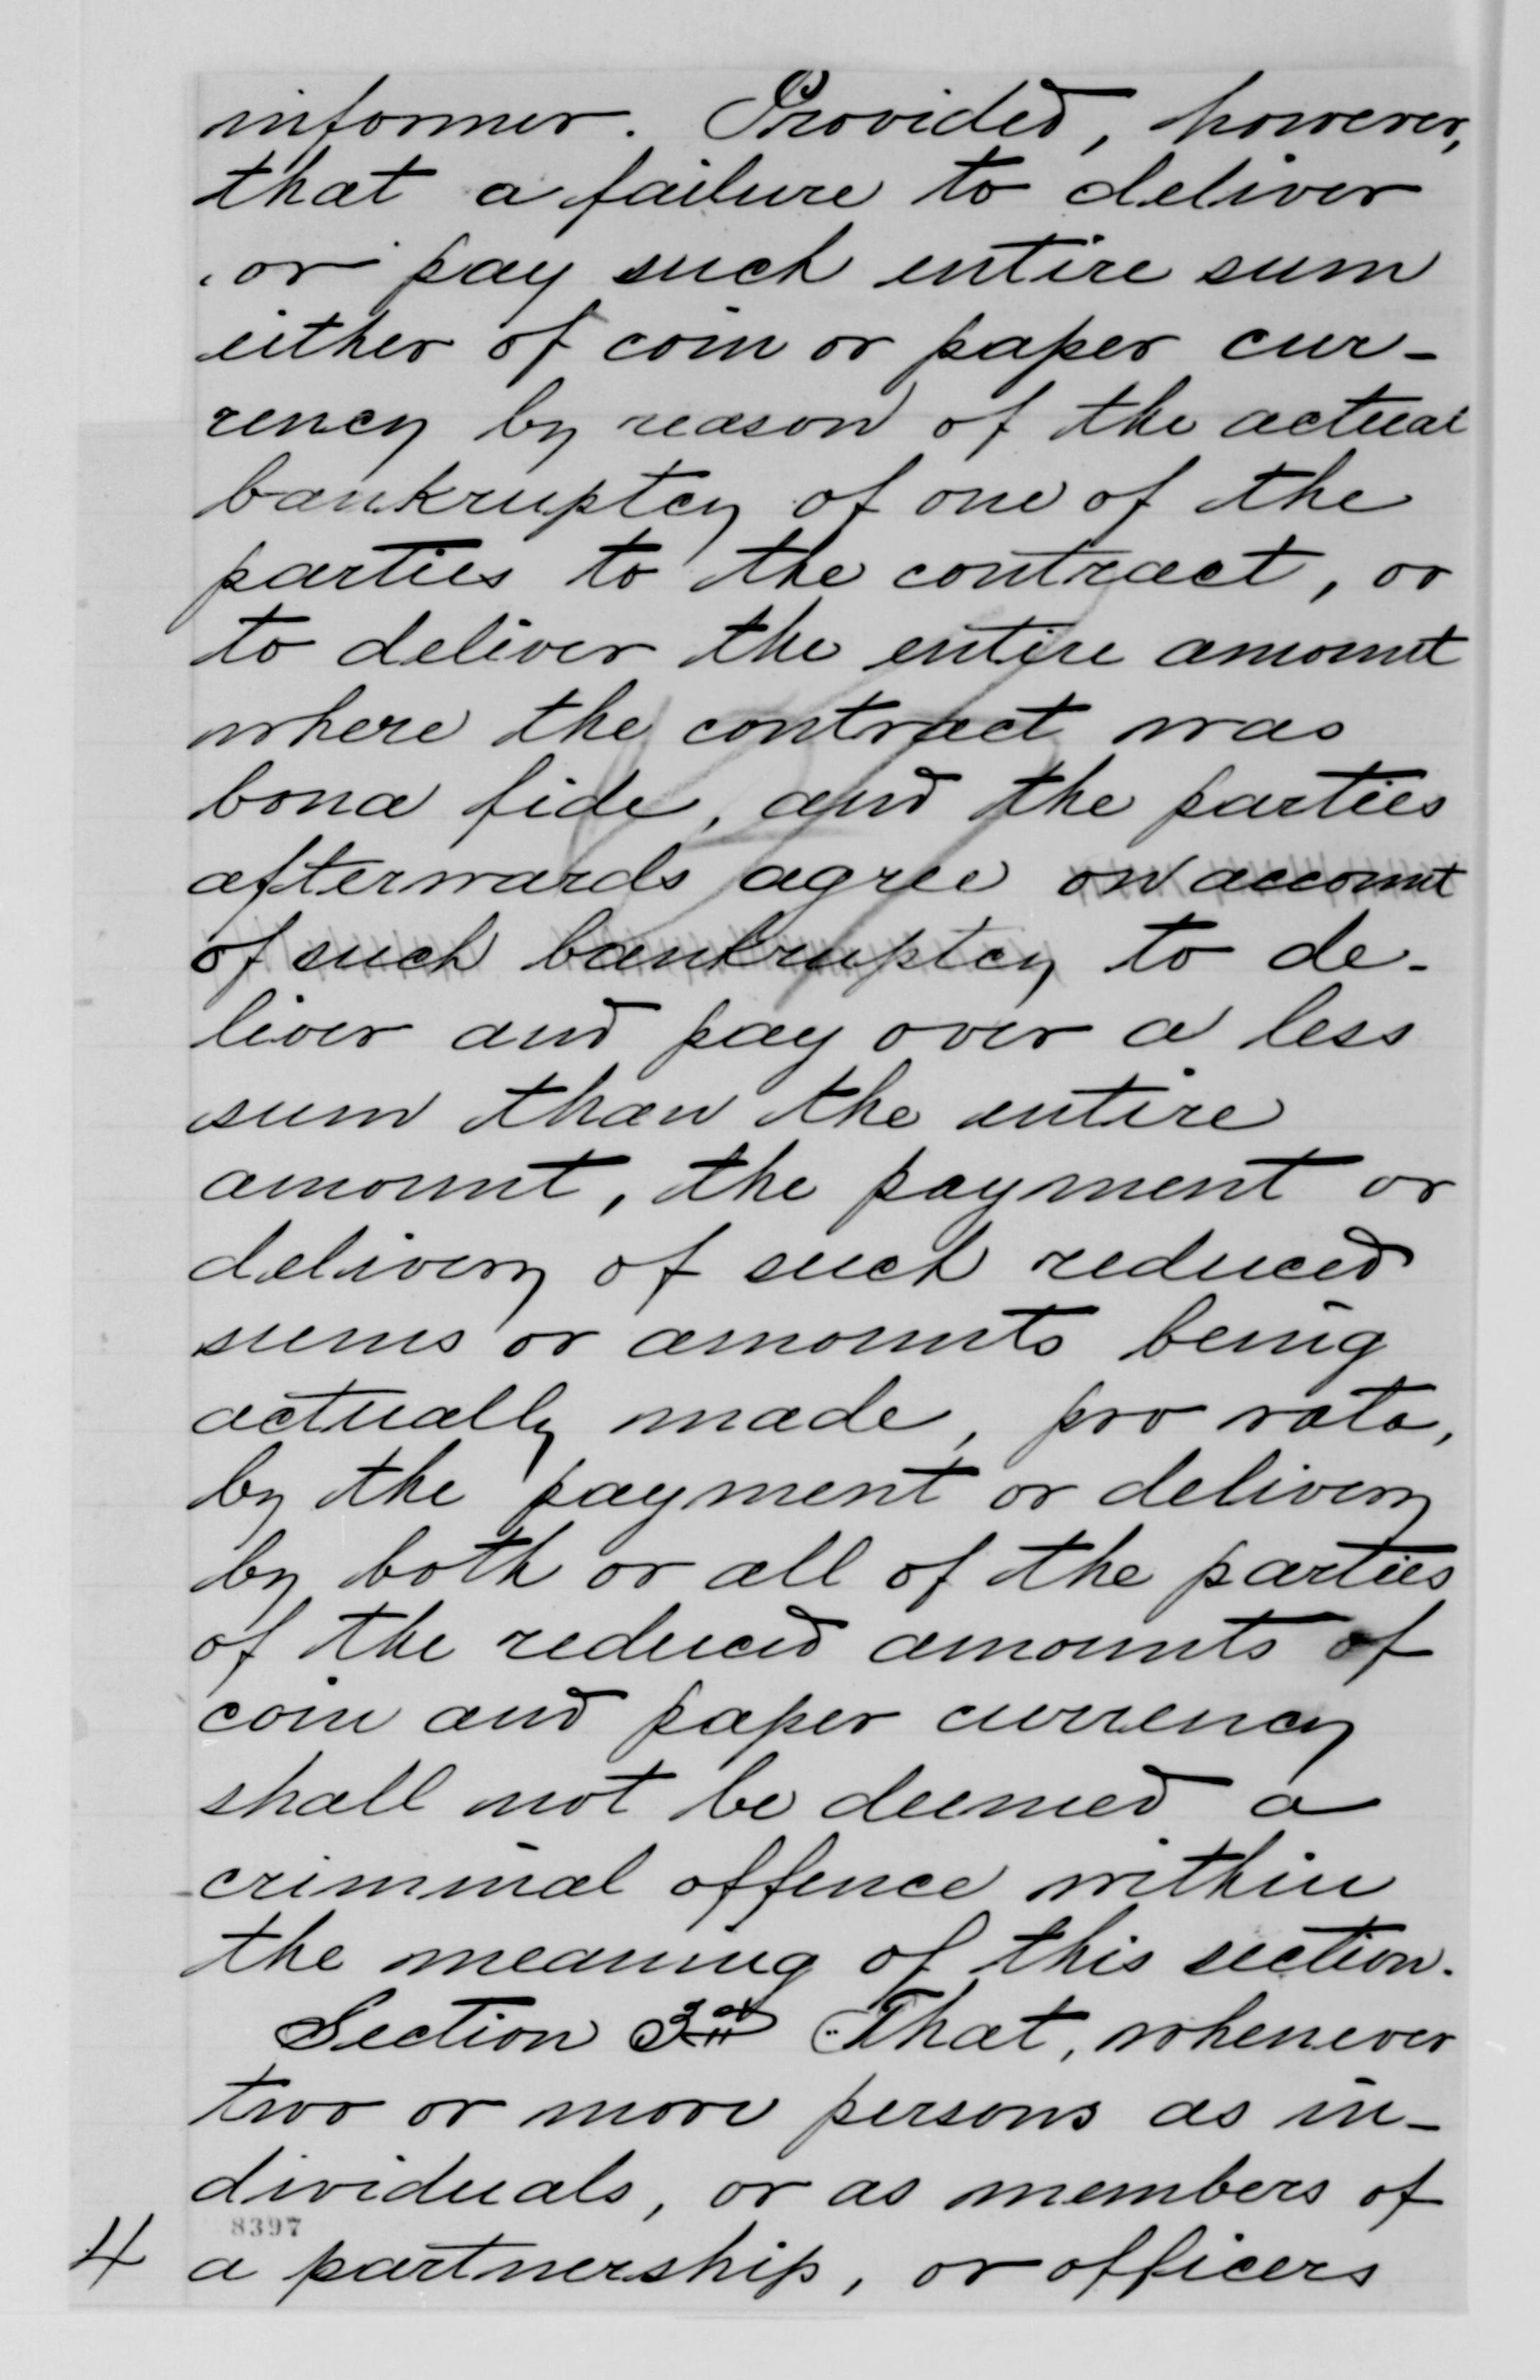 informer. Provided, however,
that a failure to deliver
or pay such entire sum
either of coin or paper cur-
rency by reason of the actual
bankruptcy of one of the
parties to the contract, or
to deliver the entire amount
where the contract was
bona fide, and the parties
afterwards agree on account
of such bankruptcy to de-
liver and pay over a less
sum than the entire
amount, the payment or
delivery of such reduced
sums or amounts being
actually made, pro rata,
by the payment or delivery
by both or all of the parties
of the reduced amounts of
coin and paper currency
shall not be deemed a
criminal offence within
the meaning of this section.
Section 3rd That, whenever
two or more persons as in-
dividuals, or as members of
8397
4 a partnership, or officers